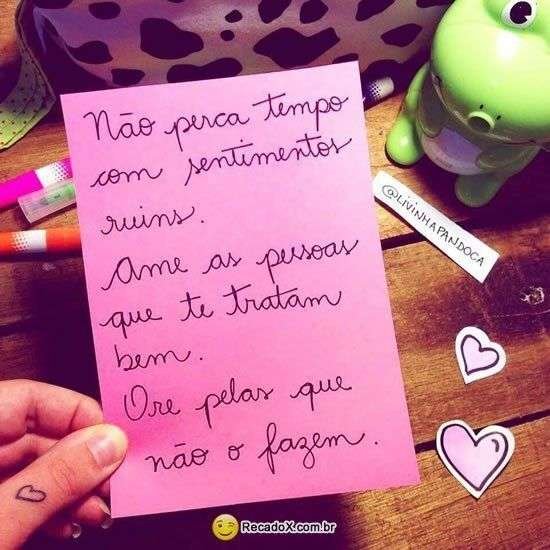 Não perca tempo
com sentimentos
ruins.
Ame as pessoas
que te tratam
bem.
Ore pelas que
não o fazem.
@LIVINHAPANDOCA
RecadoX.com.br